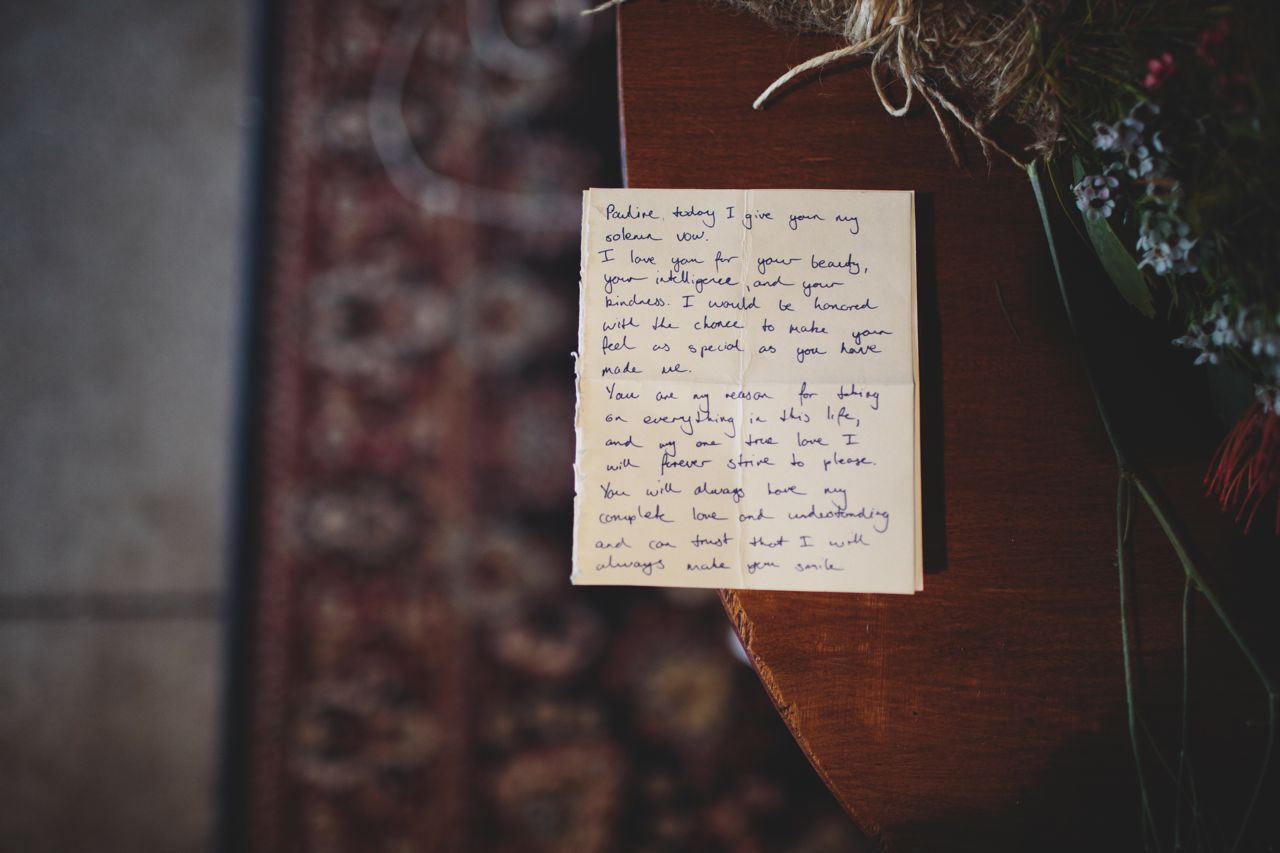 Pauline, today I give you my
solemn vow.
I love you for your beauty,
your intelligence, and your
kindness. I would be honored
with the chance to make you
feel as special as you have
made me.
You are my reason for taking
on everything in this life,
and my one true love I
will forever strive to please.
You will always have my
complete love and understanding
and can trust that I will
always make you smile